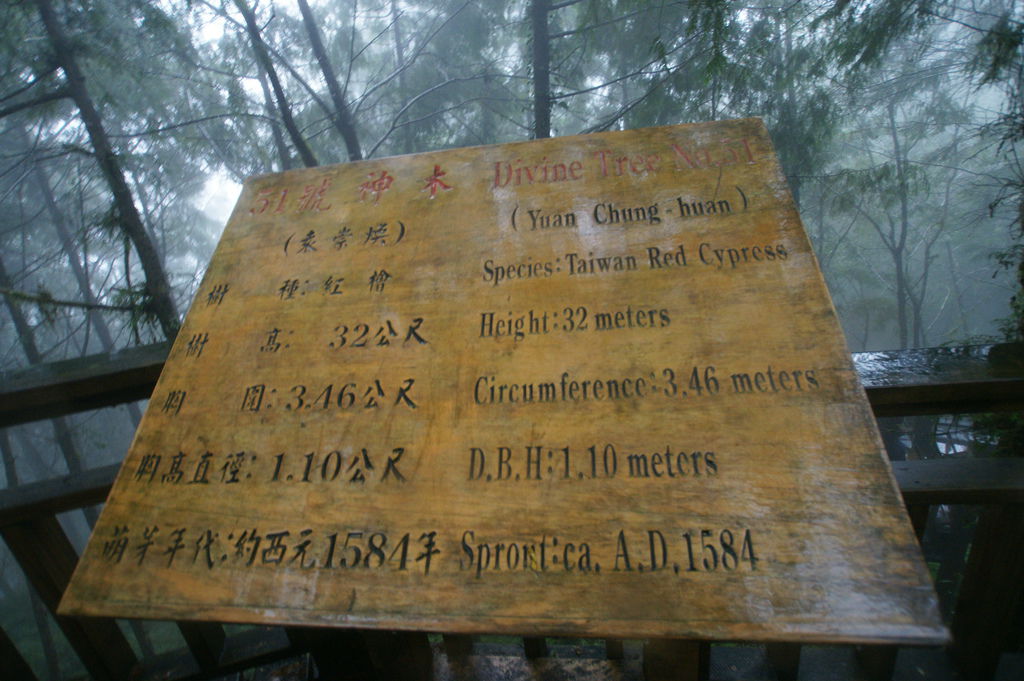 51號 神木 Divine Tree No.51
(袁崇煥) (Yuan Chung-huan)
樹 種:紅 檜 Species:Taiwan Red Cypress
樹 高: 32公尺 Height:32 meters
胸 圍:3.46公尺 Circumference:3.46 meters
胸高直徑:1.10公尺 D.B.H:1.10 meters
萌芽年代:約西元1584年 Sprost:ca. A.D.1584